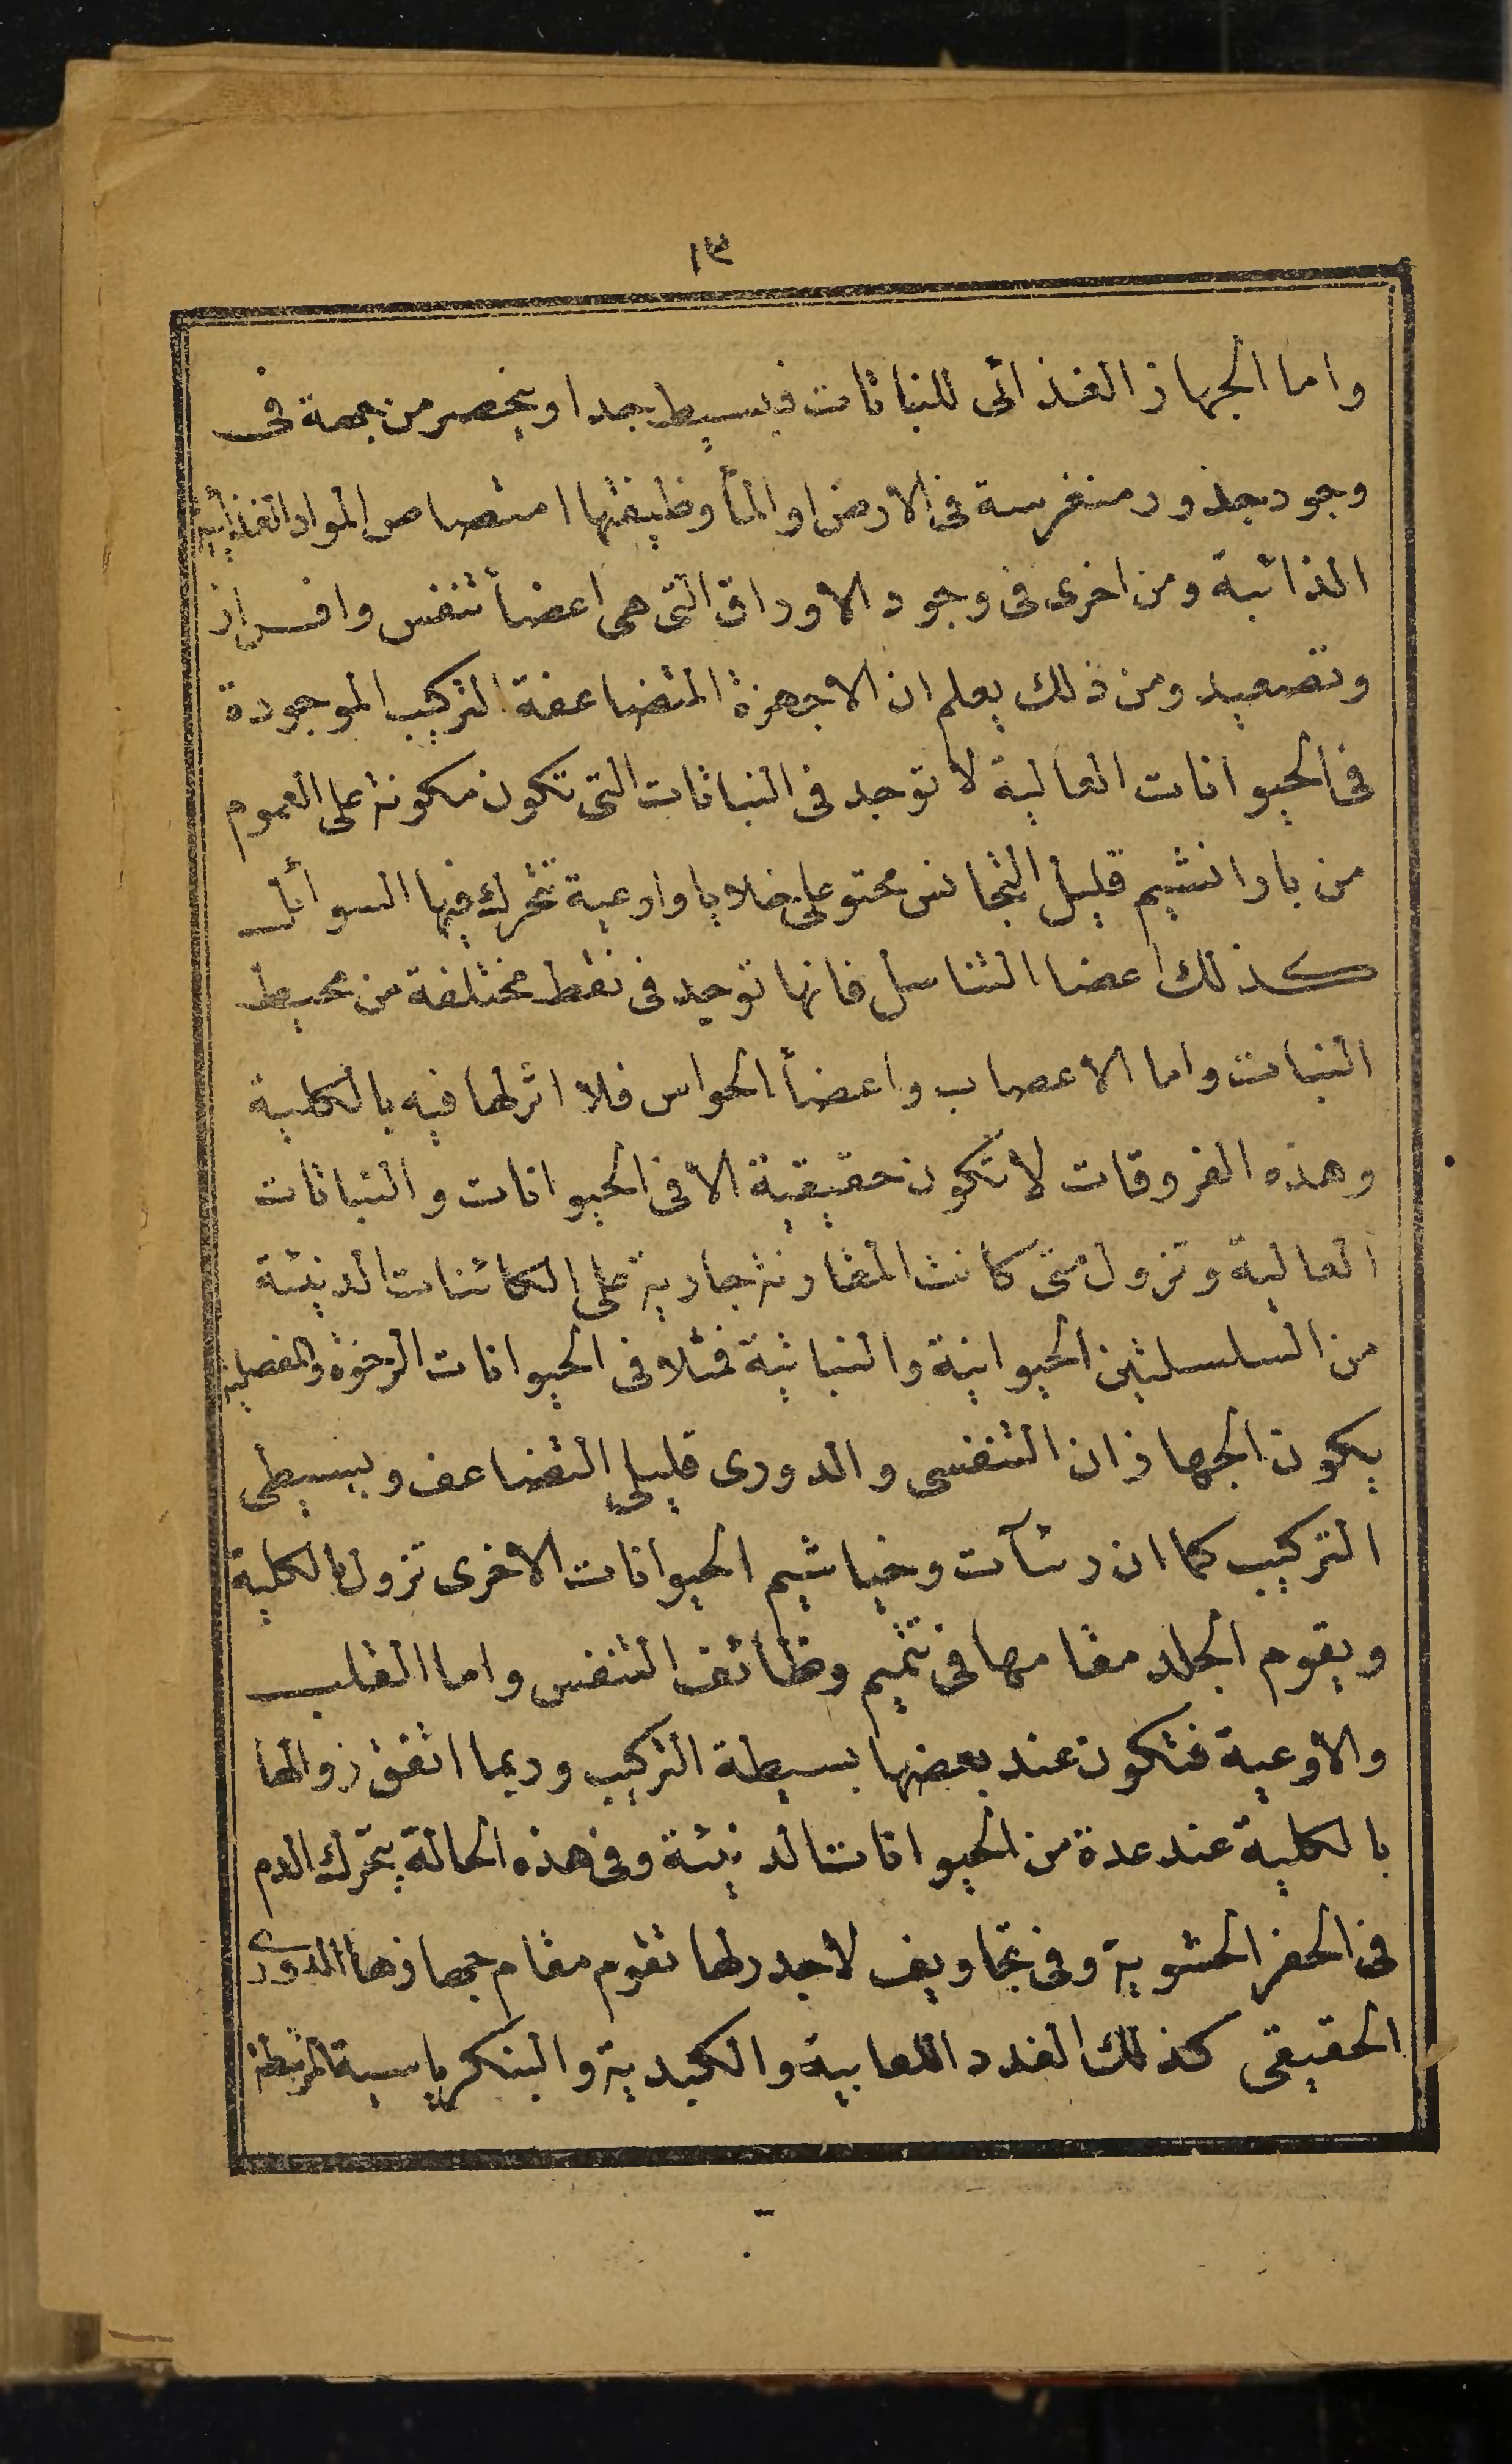 ١٣
واما الجهاز الغذائى للنباتات فبسيط جدا وينحصر من جهة فى
وجود جذور منغرسة فى الارض او المأ وظيفتها امتصاص المواد الغذأية
الذائبة ومن اخرى فى وجود الاوراق التى هى اعضأ تنفس وافراز
وتصعيد ومن ذلك يعلم ان الاجهزة المتضاعفة التركيب الموجودة
فى الحيوانات العالية لا توجد فى النباتات التى تكون مكونة على العموم
من باوانشيم قليل التجانس محتو على خلايا واوعية تتحرك فيها السوائل
كذلك اعضا التناسل فانها توجد فى نقط مختلفة من محيط
النبات واما الاعصاب واعضأ الحواس فلا اثر لها فيه بالكلية
وهذه الفروقات لا تكون حقيقية الا فى الحيوانات والنباتات
العالية وتزول متى كانت المقارنة جارية على الكائنات الدنيئة
من السلسلتين الحيوانية والنباتية فمثلا فى الحيوانات الرخوة والمفصلية
يكون الجهازان التنفسى والدورى قليلى التضاعف وبسيطى
التركيب كما ان رئآت وخياشيم الحيوانات الاخرى تزول بالكلية
ويقوم الجلد مقامها فى تتميم وظائف التنفس واما القلب
والاوعية فتكون عند بعضها بسيطة التركيب وربما اتفق زوالها
بالكلية عند عدة من الحيوانات الدنيئة وفى هذه الحالة يتحرك الدم
فى الحفر الحشوية وفى تجاويف لاجدر لها تقوم مقام جهازها الدورى
الحقيقى كذلك الغدد اللعابية والكبدية والبنكرياسية المرتبطة